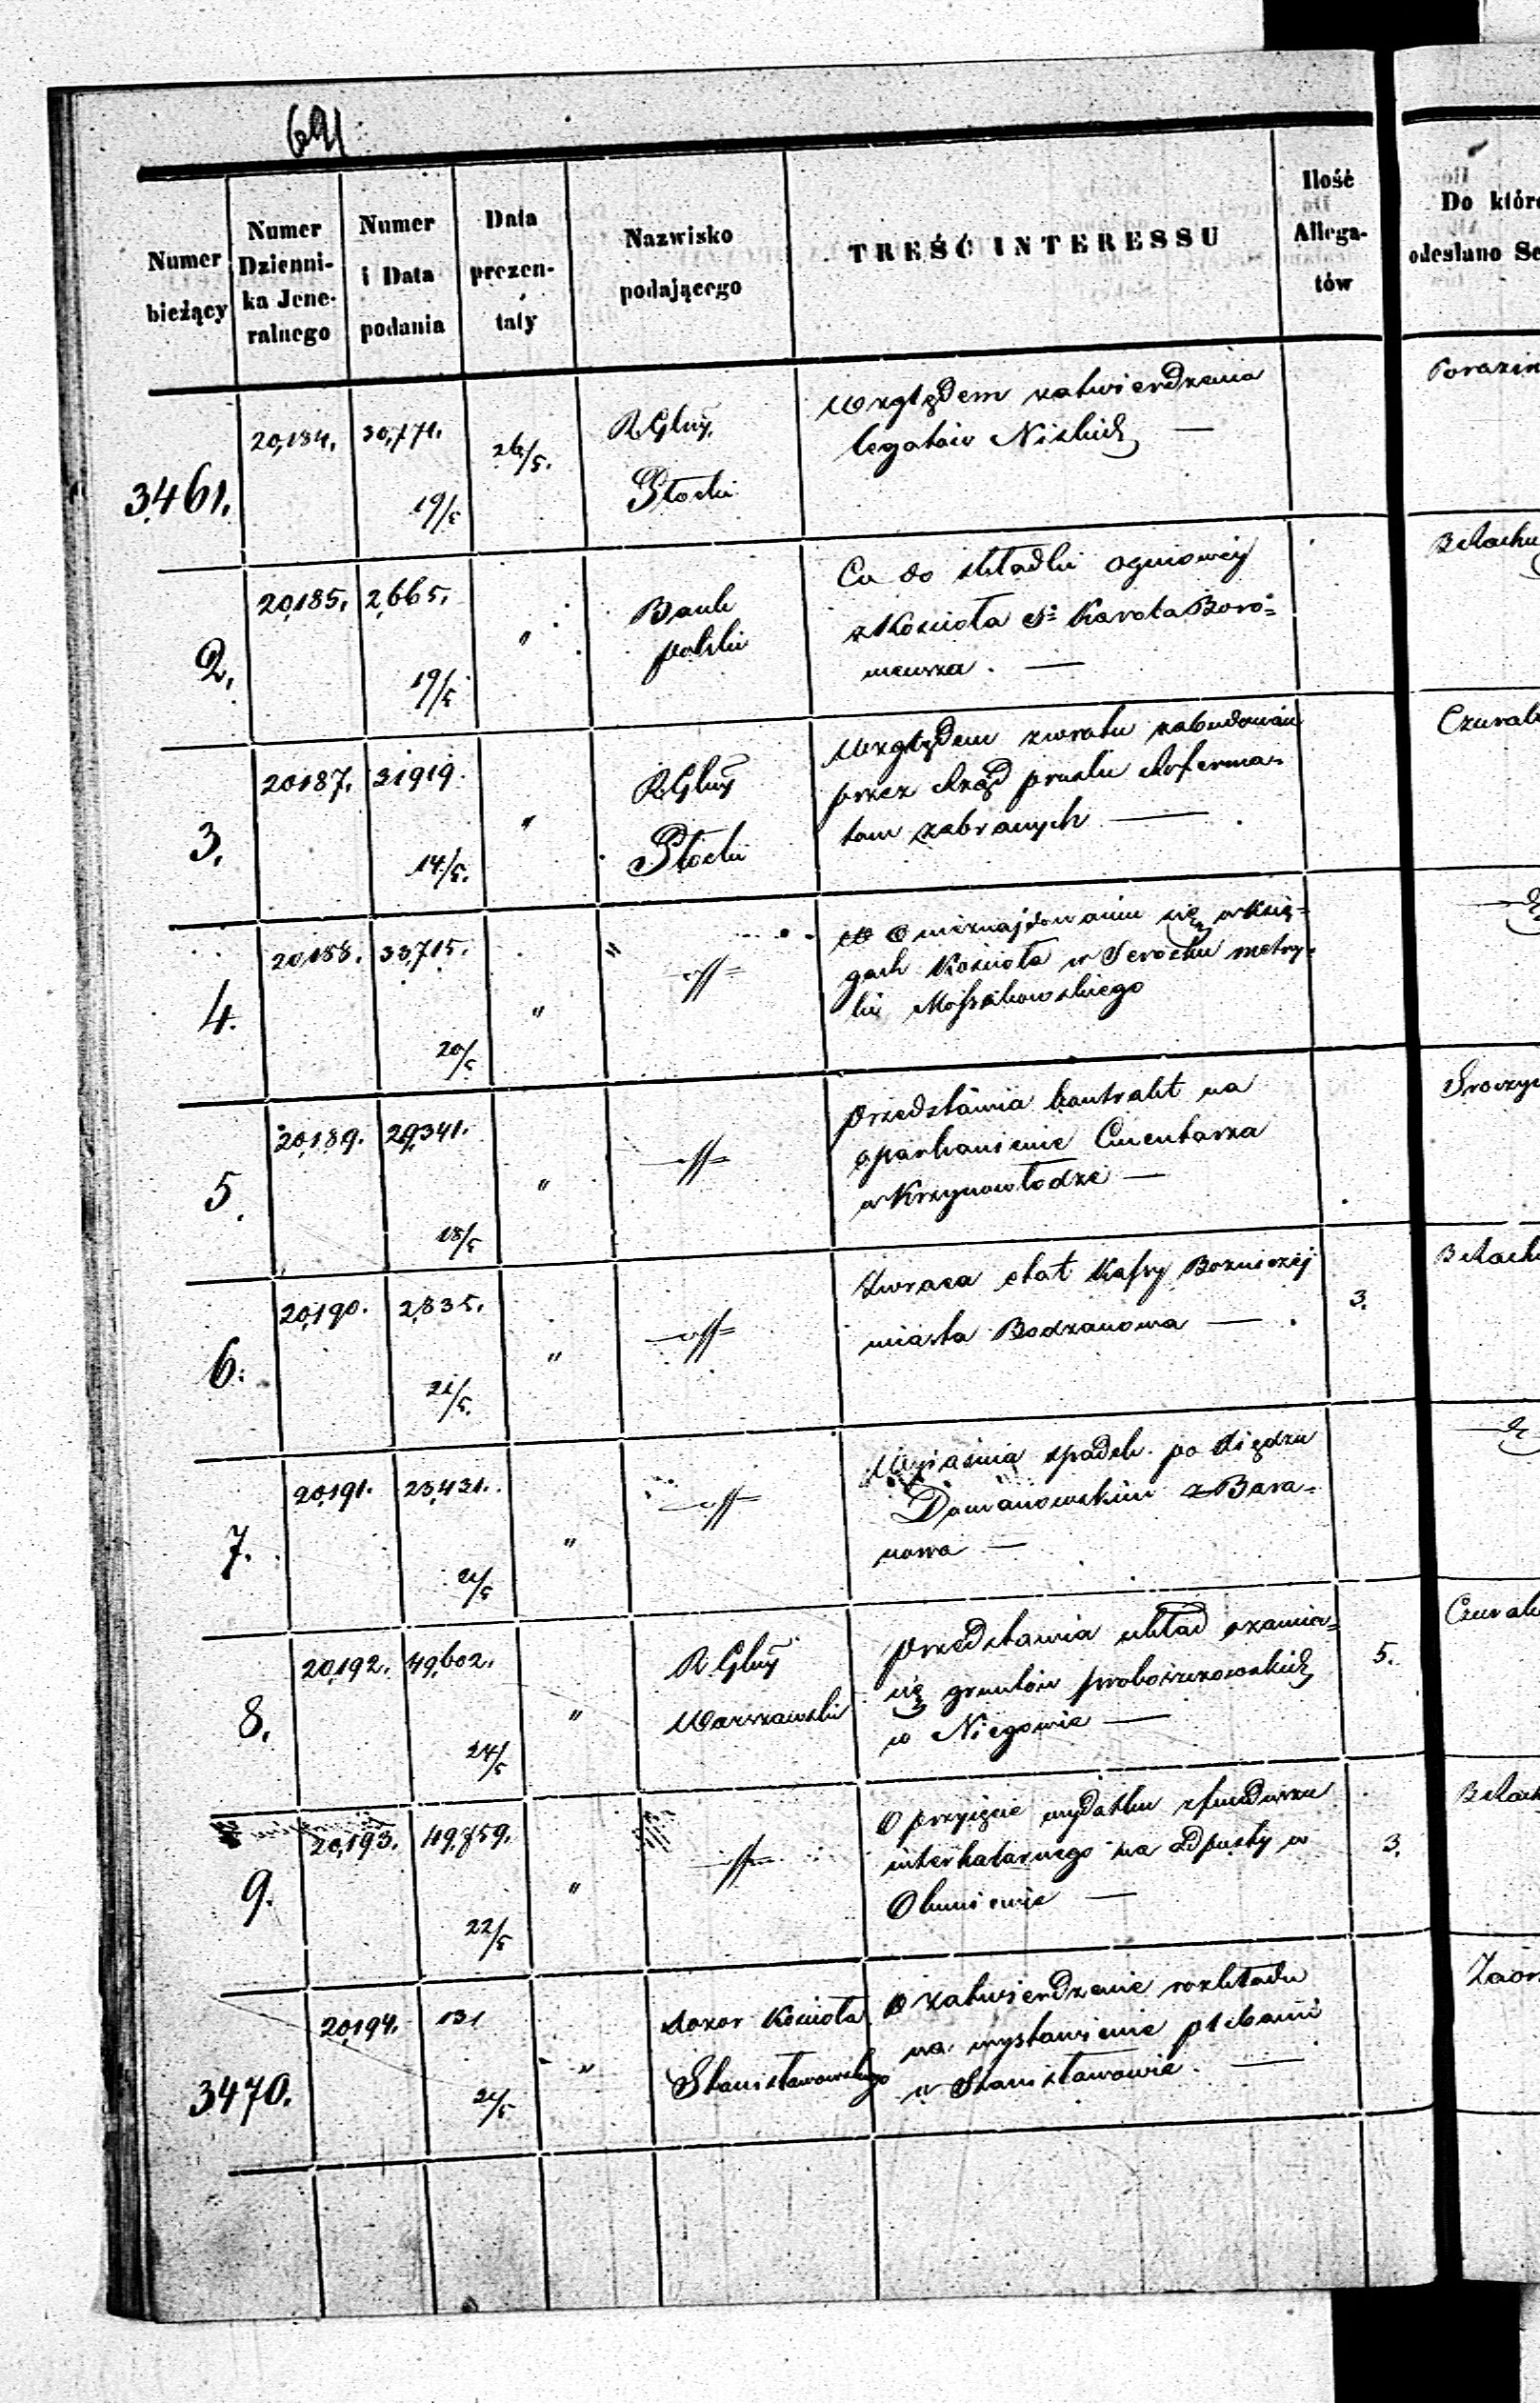 691
Numer bieżący
Numer Dzienni- ka Jene- ralnego
Numer i Data podania
Data prezen- taty
Nazwisko podającego
TREŚĆ INTERESSU
Ilość Allega- tów
Do któr
odesłano Se
3461. 20,184. 30,771. 19/5 26/5. R. Gbny. Płocki
Względem zatwierdzenia
legatów Niskich —
2. 20,185. 2,665. 19/5 " Bank polski
Co do składki ogniowéj
z Kościoła Sº Karola Boro=
meusza. —
3. 20187. 31919. 14/5. " R. Gbny Płocki
Względem zwrotu zabudowań
przez Rząd pruski Reforma-
tom zabranych —
4. 20188. 33,715. 20/5 "
O nieznajdowaniu się w Księ=
gach Kościoła w Serocku metry-
ki
5. 20,189. 29,341. 18/5 "
Przedstawia kontrakt na
oparkanienie Cmentarza
w Krzynowłodze —
6. 20,190. 2,835. 21/5. "
Zwraca etat Kassy Bożniczéj
miasta Bodzanowa — 3.
7. 20,191. 23,431. 21/5 "
Wyjaśnia spadek po Księdzu
Domanowskim z Bara=
nowa —
8. 20,192. 49,602. 24/5 " R. Gbny Warszawski
Przedstawia układ o zamia=
nę gruntów proboszczowskich
w Niegowie — 5.
9. 20,193. 49,859. 22/5 "
O przyjęcie wydatku z funduszu
interkalarnego na Odpusty w
Okuniewie — 3.
3470. 20,194. 131 21/5 " Dozor Kościoła Stanisławowskiego
O zatwierdzenie rozkładu
na wystawienie plebanii
w Stanisławowie. —